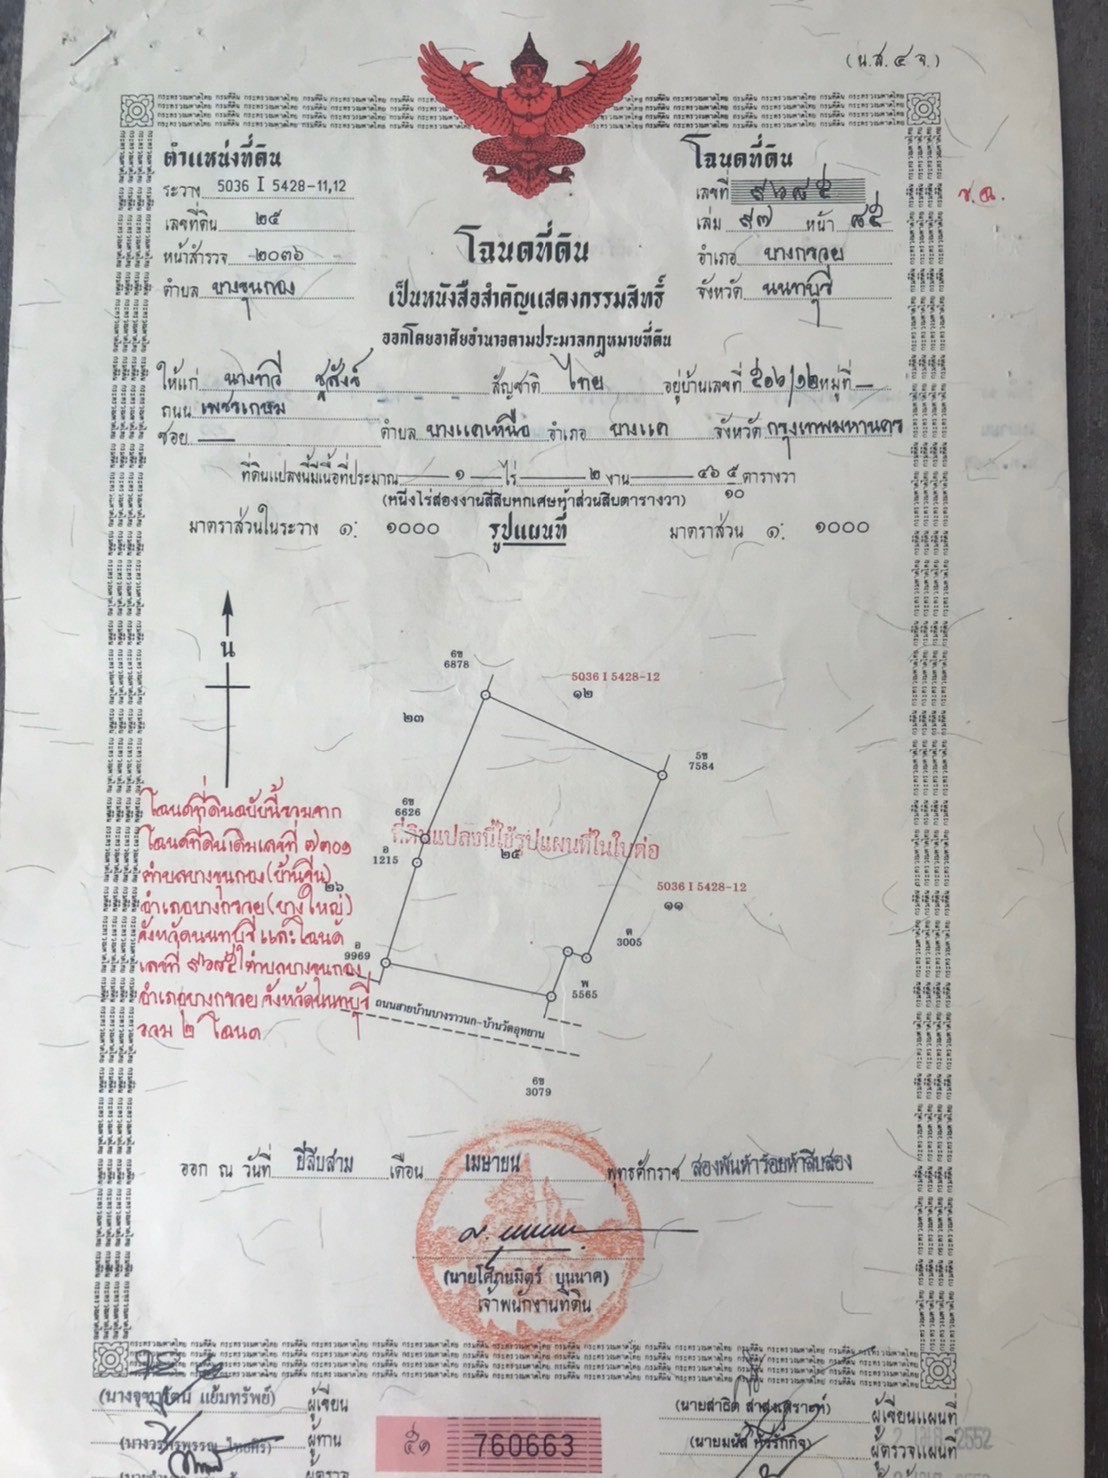 (น.ส.๔ จ.)
ตำแหน่งที่ดิน
ระวาง 5036 I 5428-11,12
เลขที่ดิน ๒๕
หน้าสำรวจ ๒๐๓๖
ตำบล บางขุนกอง
โฉนดที่ดิน
เลขที่ ๙๖๘๕
เล่ม ๙๗ หน้า ๘๕
อำเภอ บางกรวย
จังหวัด นนทบุรี
ช.ฉ.
โฉนดที่ดิน
เป็นหนังสือสำคัญแสดงกรรมสิทธิ์
ออกโดยอาศัยอำนาจตามประมวลกฎหมายที่ดิน
ให้แก่ นางทวี ชูสังข์ สัญชาติ ไทย อยู่บ้านเลขที่ ๕๐๖/๑๒ หมู่ที่ —
ถนน เพชรเกษม
ซอย — ตำบล บางแคเหนือ อำเภอ บางแค จังหวัด กรุงเทพมหานคร
ที่ดินแปลงนี้มีเนื้อที่ประมาณ ๑ ไร่ ๒ งาน ๔๖ ๕/๑๐ ตารางวา
(หนึ่งไร่สองงานสี่สิบหกเศษห้าส่วนสิบตารางวา)
มาตราส่วนในระวาง ๑: ๑๐๐๐ รูปแผนที่ มาตราส่วน ๑: ๑๐๐๐
น
6ข
6878
5036 I 5428-12
๑๒
๒๓
5ข
7584
6ข
6626
ที่ดินแปลงนี้ใช้รูปแผนที่ในใบต่อ
๒๕
อ
1215
5036 I 5428-12
๑๑
๒๖
ค
3005
อ
9969
พ
5565
ถนนสายบ้านบางราวนก-บ้านวัดอุทยาน
6ข
3079
โฉนดที่ดินฉบับนี้รวมจาก
โฉนดที่ดินเดิมเลขที่ ๗๓๐๑
ตำบลบางขุนกอง(บ้านจีน)
อำเภอบางกรวย(บางใหญ่)
จังหวัดนนทบุรี และโฉนด
เลขที่ ๙๖๘๕ ตำบลบางขุนกอง
อำเภอบางกรวย จังหวัดนนทบุรี
รวม ๒ โฉนด
ออก ณ วันที่ ยี่สิบสาม เดือน เมษายน พุทธศักราช สองพันห้าร้อยห้าสิบสอง
(นายโศภนมิตร์ บุนนาค)
เจ้าพนักงานที่ดิน
(นางจุฑารัตน์ แย้มทรัพย์) ผู้เขียน
ผู้ทาน
ผู้ตรวจ
๕๑ 760663
(นายสาธิต ) ผู้เขียนแผนที่
(นายมนัส ) ผู้ตรวจแผนที่
2552